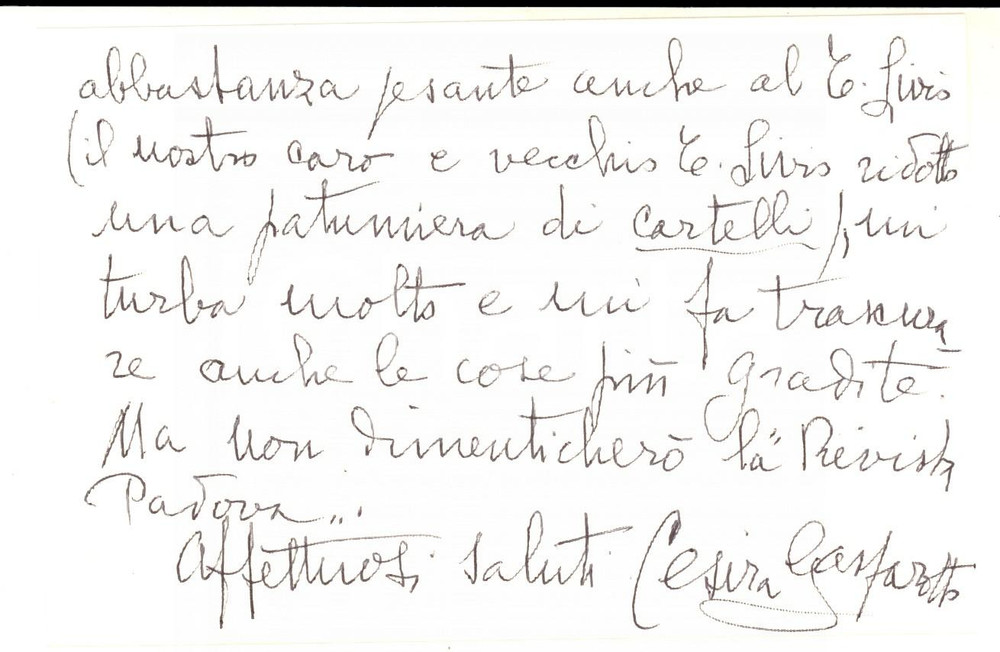 abbastanza pesante anche al T. Livio
(il nostro caro e vecchio T. Livio ridotto
una patumiera di cartelli), mi
turba molto e mi fa trascura
re anche le cose più gradite.
Ma non dimenticherò la "Rivista
Padova"...
Affettuosi saluti Cesira Gasparotto